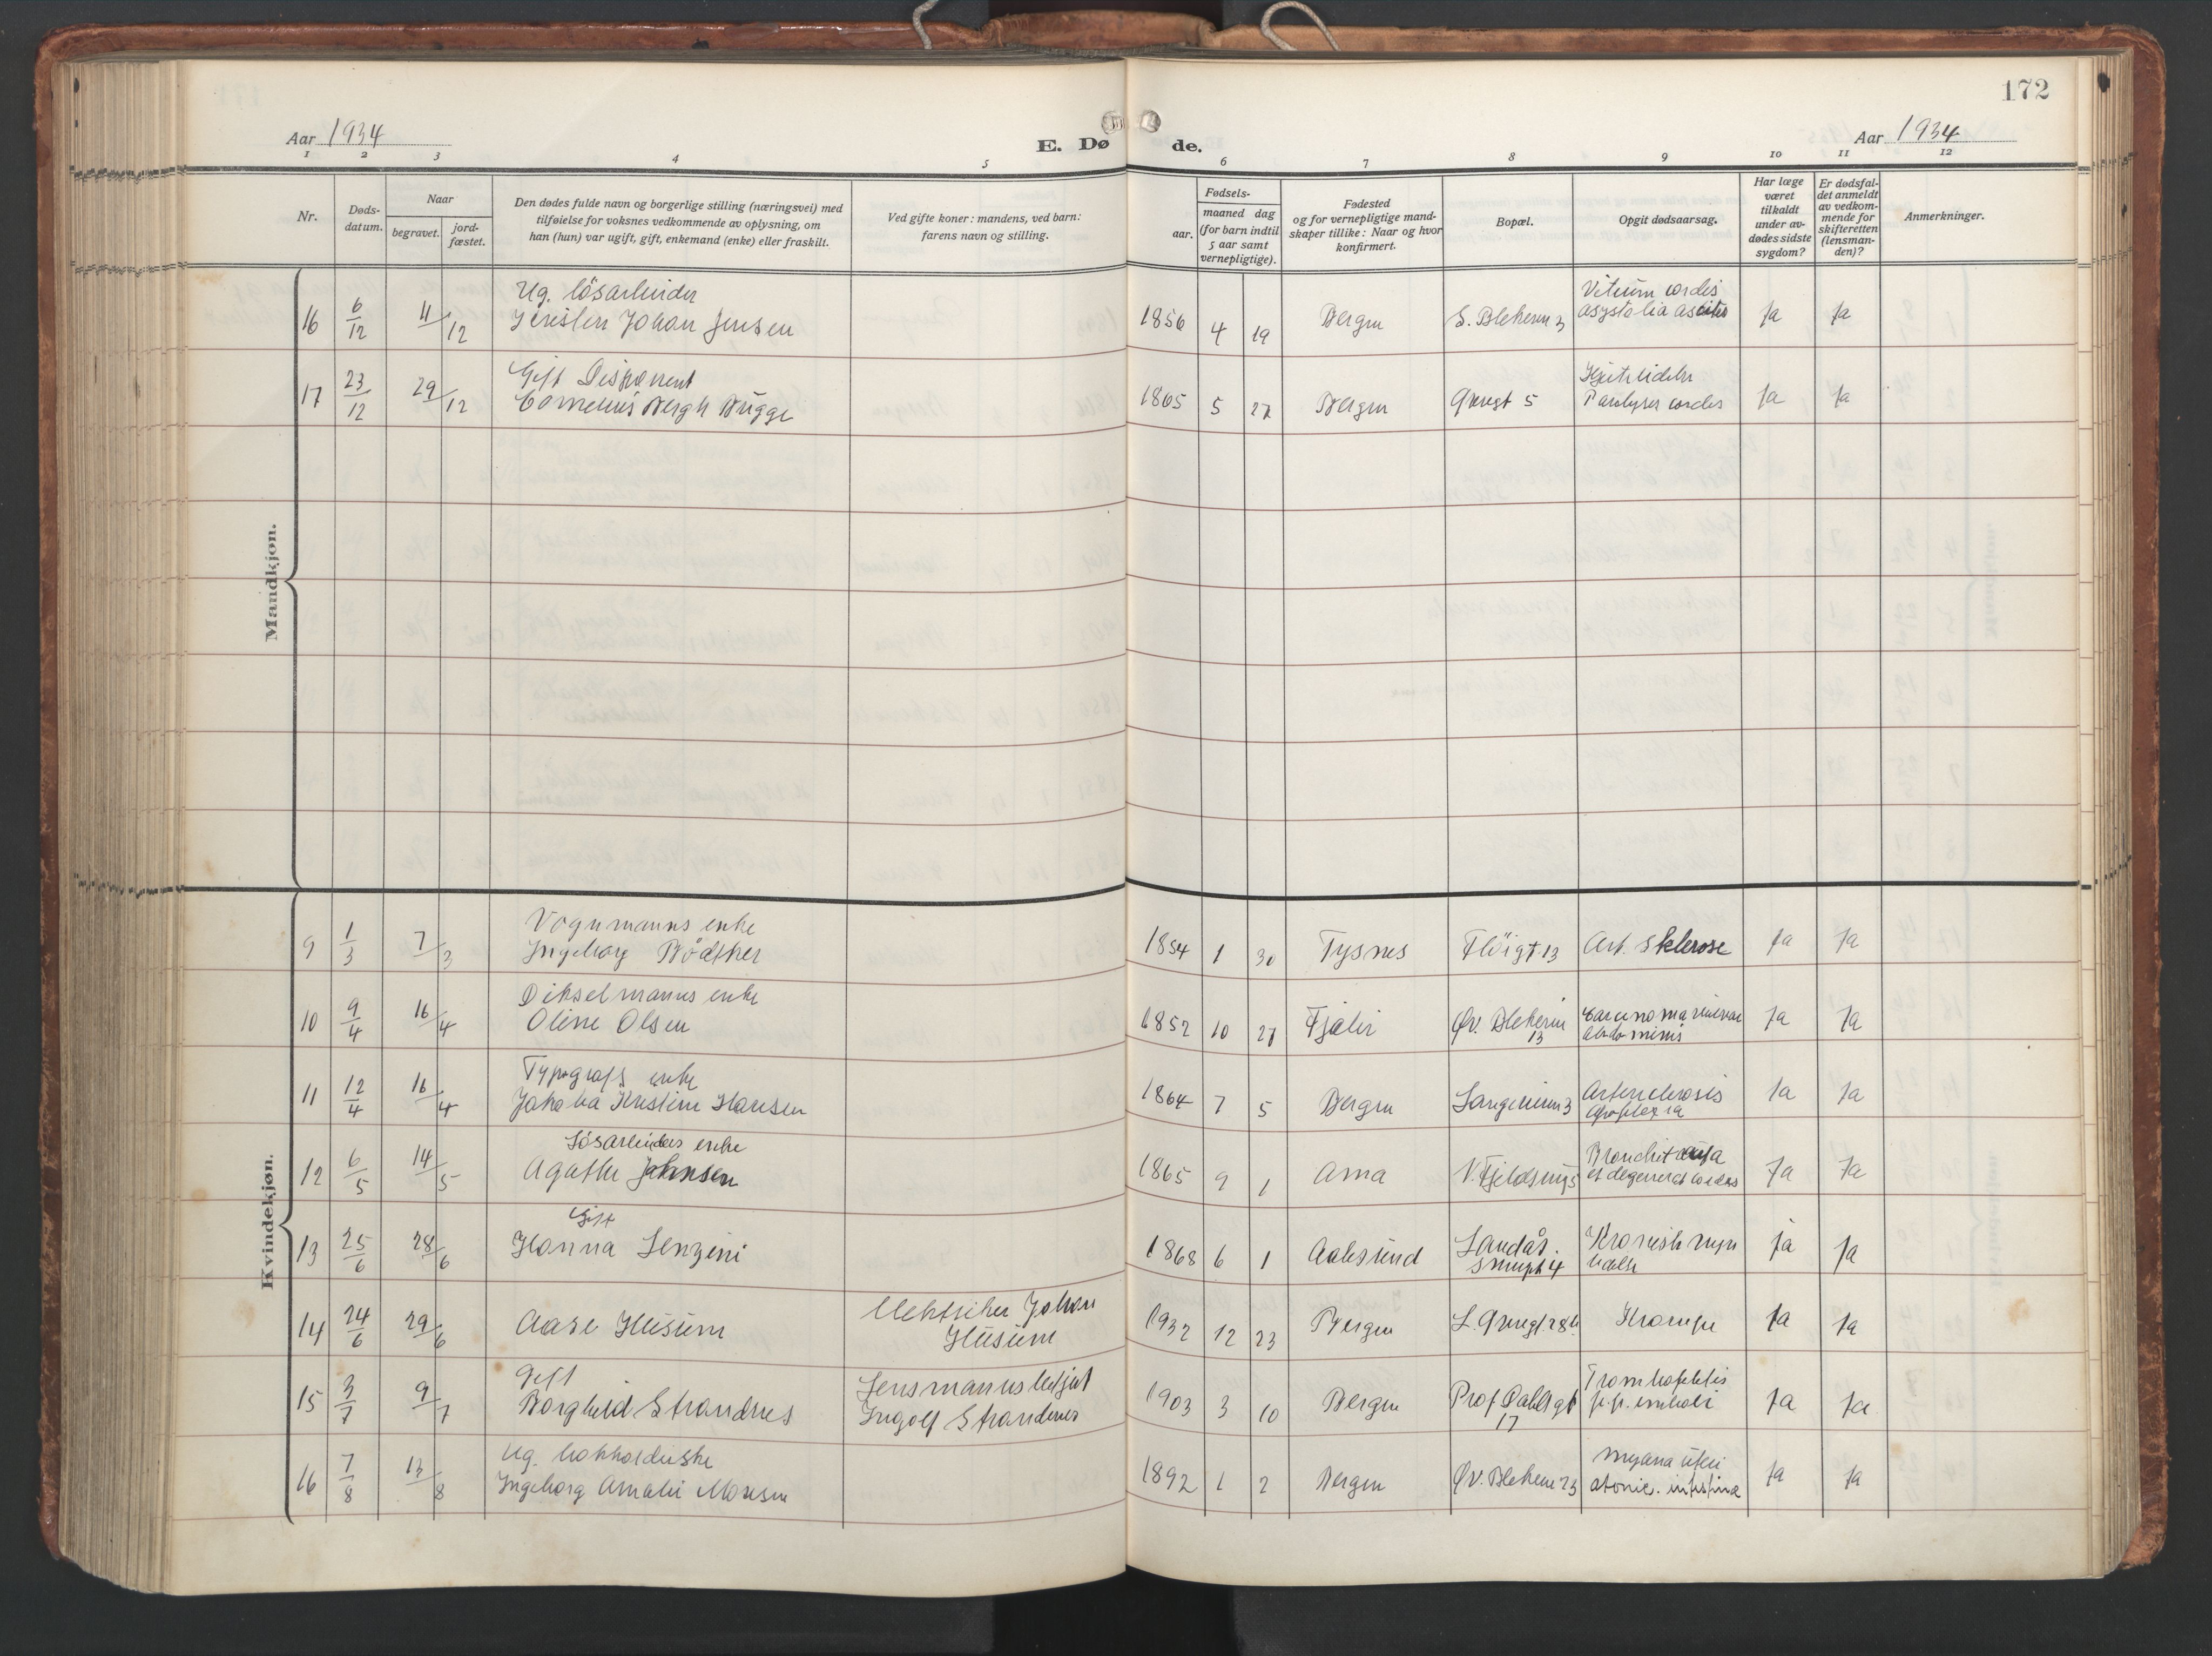 172
Aar 1934
E. Dø de.
Aar 1934
1 2 3 4 5 6 7 8 9 10 11 12
Nr.
Døds-
datum.
Naar
begravet.
jord-
fæstet.
Den dødes fulde navn og borgerlige stilling (næringsvei) med
tilføielse for voksnes vedkommende av oplysning, om
han (hun) var ugift, gift, enkemand (enke) eller fraskilt.
Ved gifte koner: mandens, ved barn:
farens navn og stilling.
Fødsels-
aar.
maaned dag
(for barn indtil
5 aar samt
vernepligtige).
Fødested
og for vernepligtige mand-
skaper tillike: Naar og hvor
konfirmert.
Bopæl.
Opgit dødsaarsag.
Har læge
været
tilkaldt
under av-
dødes sidste
sygdom?
Er dødsfal-
det anmeldt
av vedkom-
mende for
skifteretten
(lensman-
den)?
Anmerkninger.
Mandkjøn.
Ug. løsarbeider
16 6/12 11/12 Johan Jensen 1856 4 19 Bergen S. Blekevn 3 Ja Ja
Vitium cordis
asystolia ascites
Gift Disponent
17 23/12 29/12 Cornelius Bergh Bügge 1865 5 27 Bergen 5 Ja Ja
Paralyses cordis
Kvindekjøn.
Vognmanns enke
9 1/3 7/3 Ingeborg Bödtker 1854 1 30 Tysnes Flöigt 13 Art. sklerose Ja Ja
enke
10 9/4 16/4 Oline Olsen 1852 10 27 Fjaler Øv. Blekevn Ja Ja
13
Carcinoma
abdominis
Typografs enke
11 12/4 16/4 Jakoba Kristine Hansen 1864 7 5 Bergen 3 Ja Ja
Arteriosclerosis
apoplexia
Løsarbeiders enke
12 6/5 14/5 Agathe Johnsen 1865 9 1 Arna 5 Ja Ja
et degenerat cordis
Gift
13 25/6 28/6 Hanna Lenzini 1868 6 1 Aalesund Landås. Kronisk nyre Ja Ja
4 lidelse
14 24/6 29/6 Aase Hüsüm Elektriker Johan 1932 12 23 Bergen Krampe Ja Ja
Hüsüm
Gift
15 3/7 9/7 Borghild Strandnes Lensmannsbetjent 1903 3 10 Bergen Prof Dahlsgt Ja Ja
Ingolf Strandnes
17
p.p. emboli
Ug.
16 7/8 13/8 Ingeborg Amalie Monsen 1892 1 2 Bergen Øv. Blekevn 23 Ja Ja
uteri